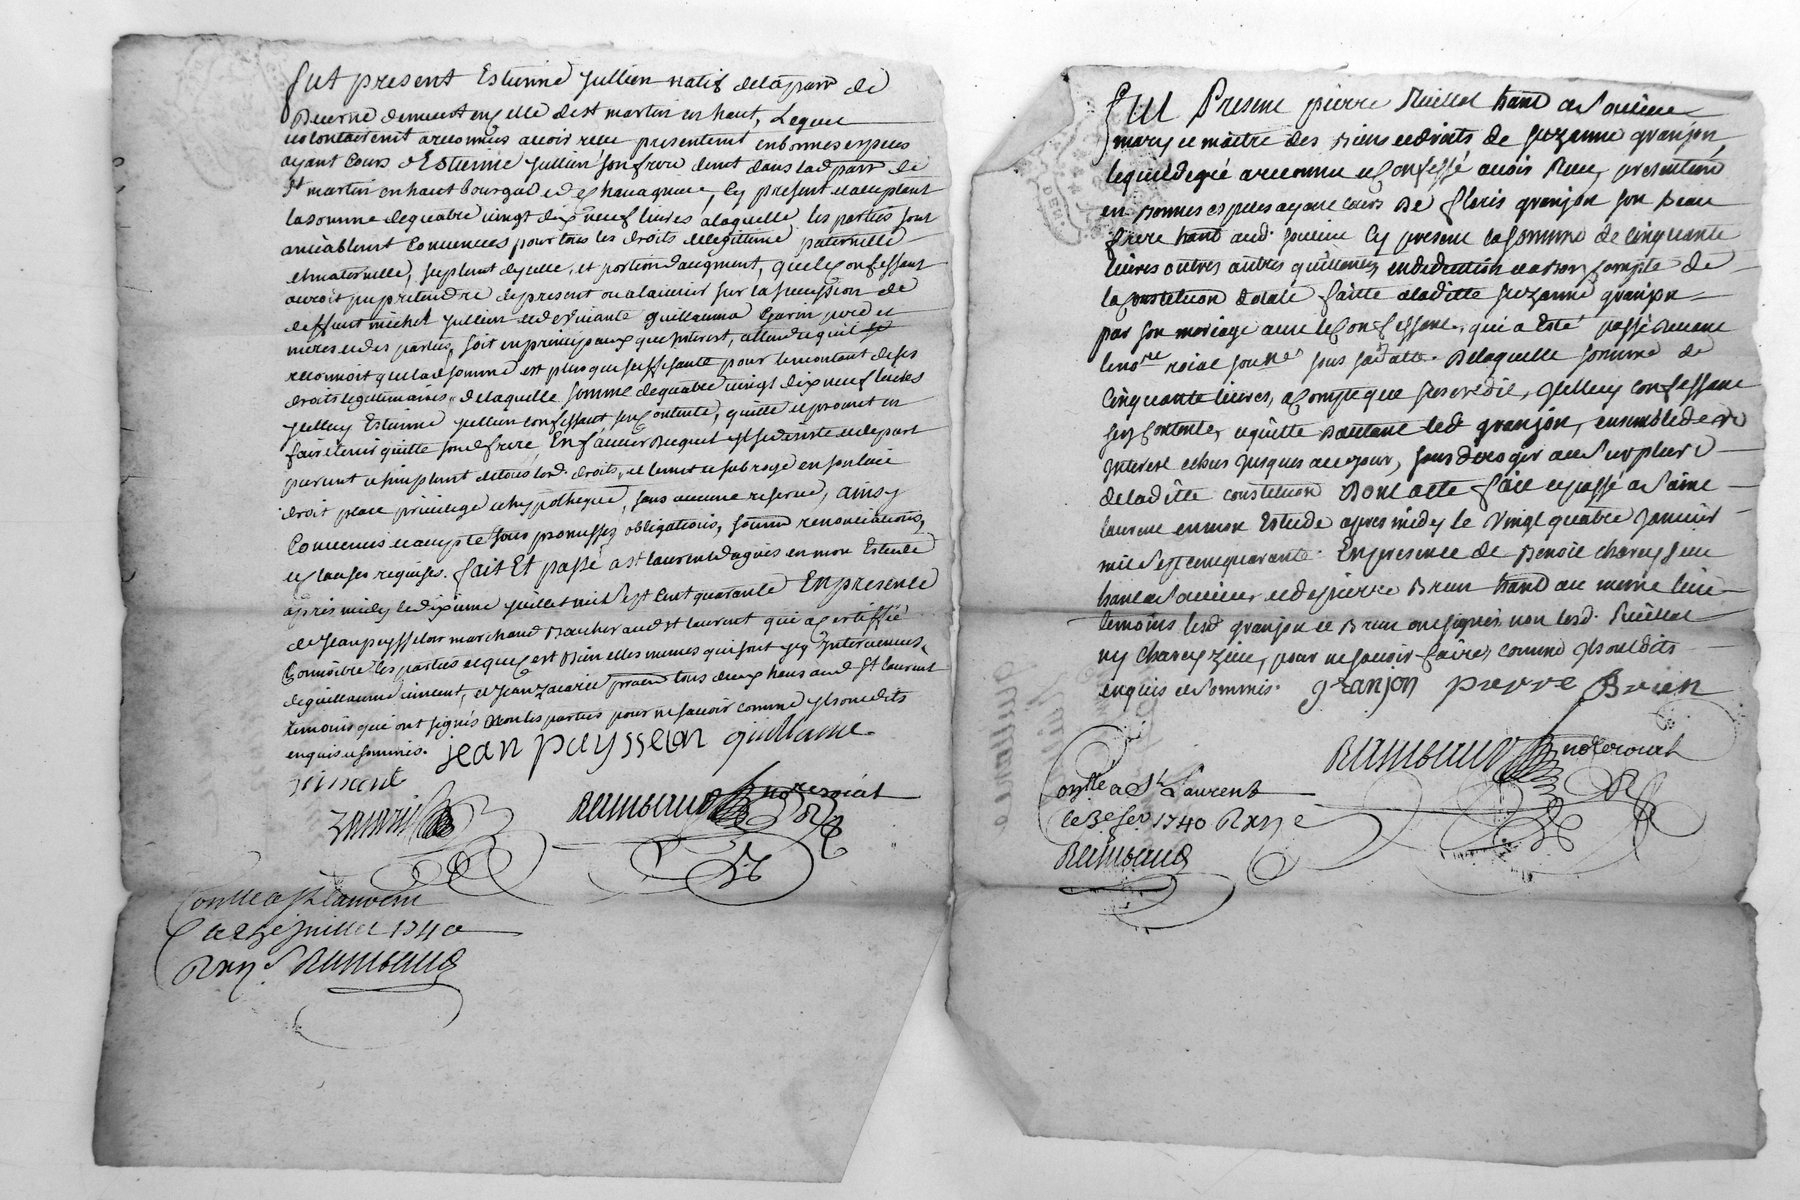 fut present Estienne Jullien natif de la parr de
demeurt en celle de st martin en haut, Lequel
volontairemt a reconnu avoir receu presentemt en bonnes especes
ayant Cours d'Estienne Jullien son frere demt dans lad parr de
st martin en haut bourg de cy present et acceptant
la somme de quatre vingt dix neuf livres a laquelle les parties sont
amiablemt Convenues pour tous les droits de legitime paternelle
et maternelle, suplemt d'ycelle, et portion d'augment, que le Confessant
auroit pu pretendre de present ou a l'avenir sur la succession de
deffunt michel Jullien et de vivante guillauma Garin pere et
meres des parties, soit en principaux que Interest, attendu qu'il
reconnoit que lad somme est plus que suffisante pour le montant de ses
droits legitimaires, de laquelle somme de quatre vingt dix neuf livres
Jcelluy Estienne Jullien confessant, se Contente, quitte et promet en
faire tenir quitte sond frere, En faveur Duquel il se desiste et depart
puremt et simplemt de tous lesd. droits, et le met et subroge en son lieu
droit place privilege et hypotheque, sans aucune reserve, ainsy
Convenu et accepté sous promesses obligations, soumn renonciations,
et clauses requises. fait Et passé a st laurent d'agnis en mon Estude
apres midy le dixieme juillet mil sept cent quarante En presence
de Jean peysselon marchand Boucher aud st laurent qui a certiffié
Connoitre les parties et que c'est Bien elles memes qui sont Jcy Intervenues,
de guillaume vincent, et Jean zacarie tous deux habs aud st laurent
temoins qui ont signés Non les parties pour ne sçavoir comme ils ont dits
enquis et sommés. jean paysselon guillaume
vincent
zacarie Raimbaud nore roial
Conllé a St Laurent
le juillet 1740
Raimbaud
Fut Present pierre habt a Soucieu
mary et maitre des Biens et droits de suzanne granjon,
lequel de gré a reconnu et Confessé avoir Receu presentemt
en Bonnes especes ayant cours De floris granjon son Beau
frere habt aud. soucieu Cy present la somme de cinquante
livres outres autres quittances, en deduction et a Bon Compte de
la Constitution dotale faitte a laditte suzanne granjon
par son mariage avec le Confessant, qui a Esté passé Devant
le nore roial sous sa datte. De laquelle somme de
Cinquante livres, a Compte que sus est dit, Jcelluy confessant
se Contente, et quitte D'autant led granjon, ensemble des
Interest echus jusques a ce jour, sans deroger au surplus
de laditte constitution Dont acte fait et passé a Saint
laurent en mon Estude apres midy le Vingt quatre Janvier
mil Sept cent quarante. En presence de Benoit chareyzieu
habt a Soucieu, et de pierre Brun habt au meme lieu
temoins lesd granjon et Brun ont signés non lesd.
ny Chareyzieu, pour ne sçavoir faire, comme ils ont dits
enquis et Sommés. granjon pierre Brun
Raimbaud nore roial
Conllé a St Laurent
le 3e fer 1740
Raimbaud